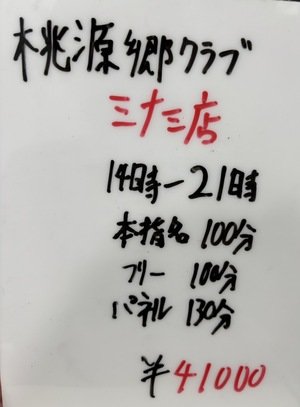 桃源郷クラブ
三十三店
14時-21時
本指名 100分
フリー 100分
パネル 130分
¥41000